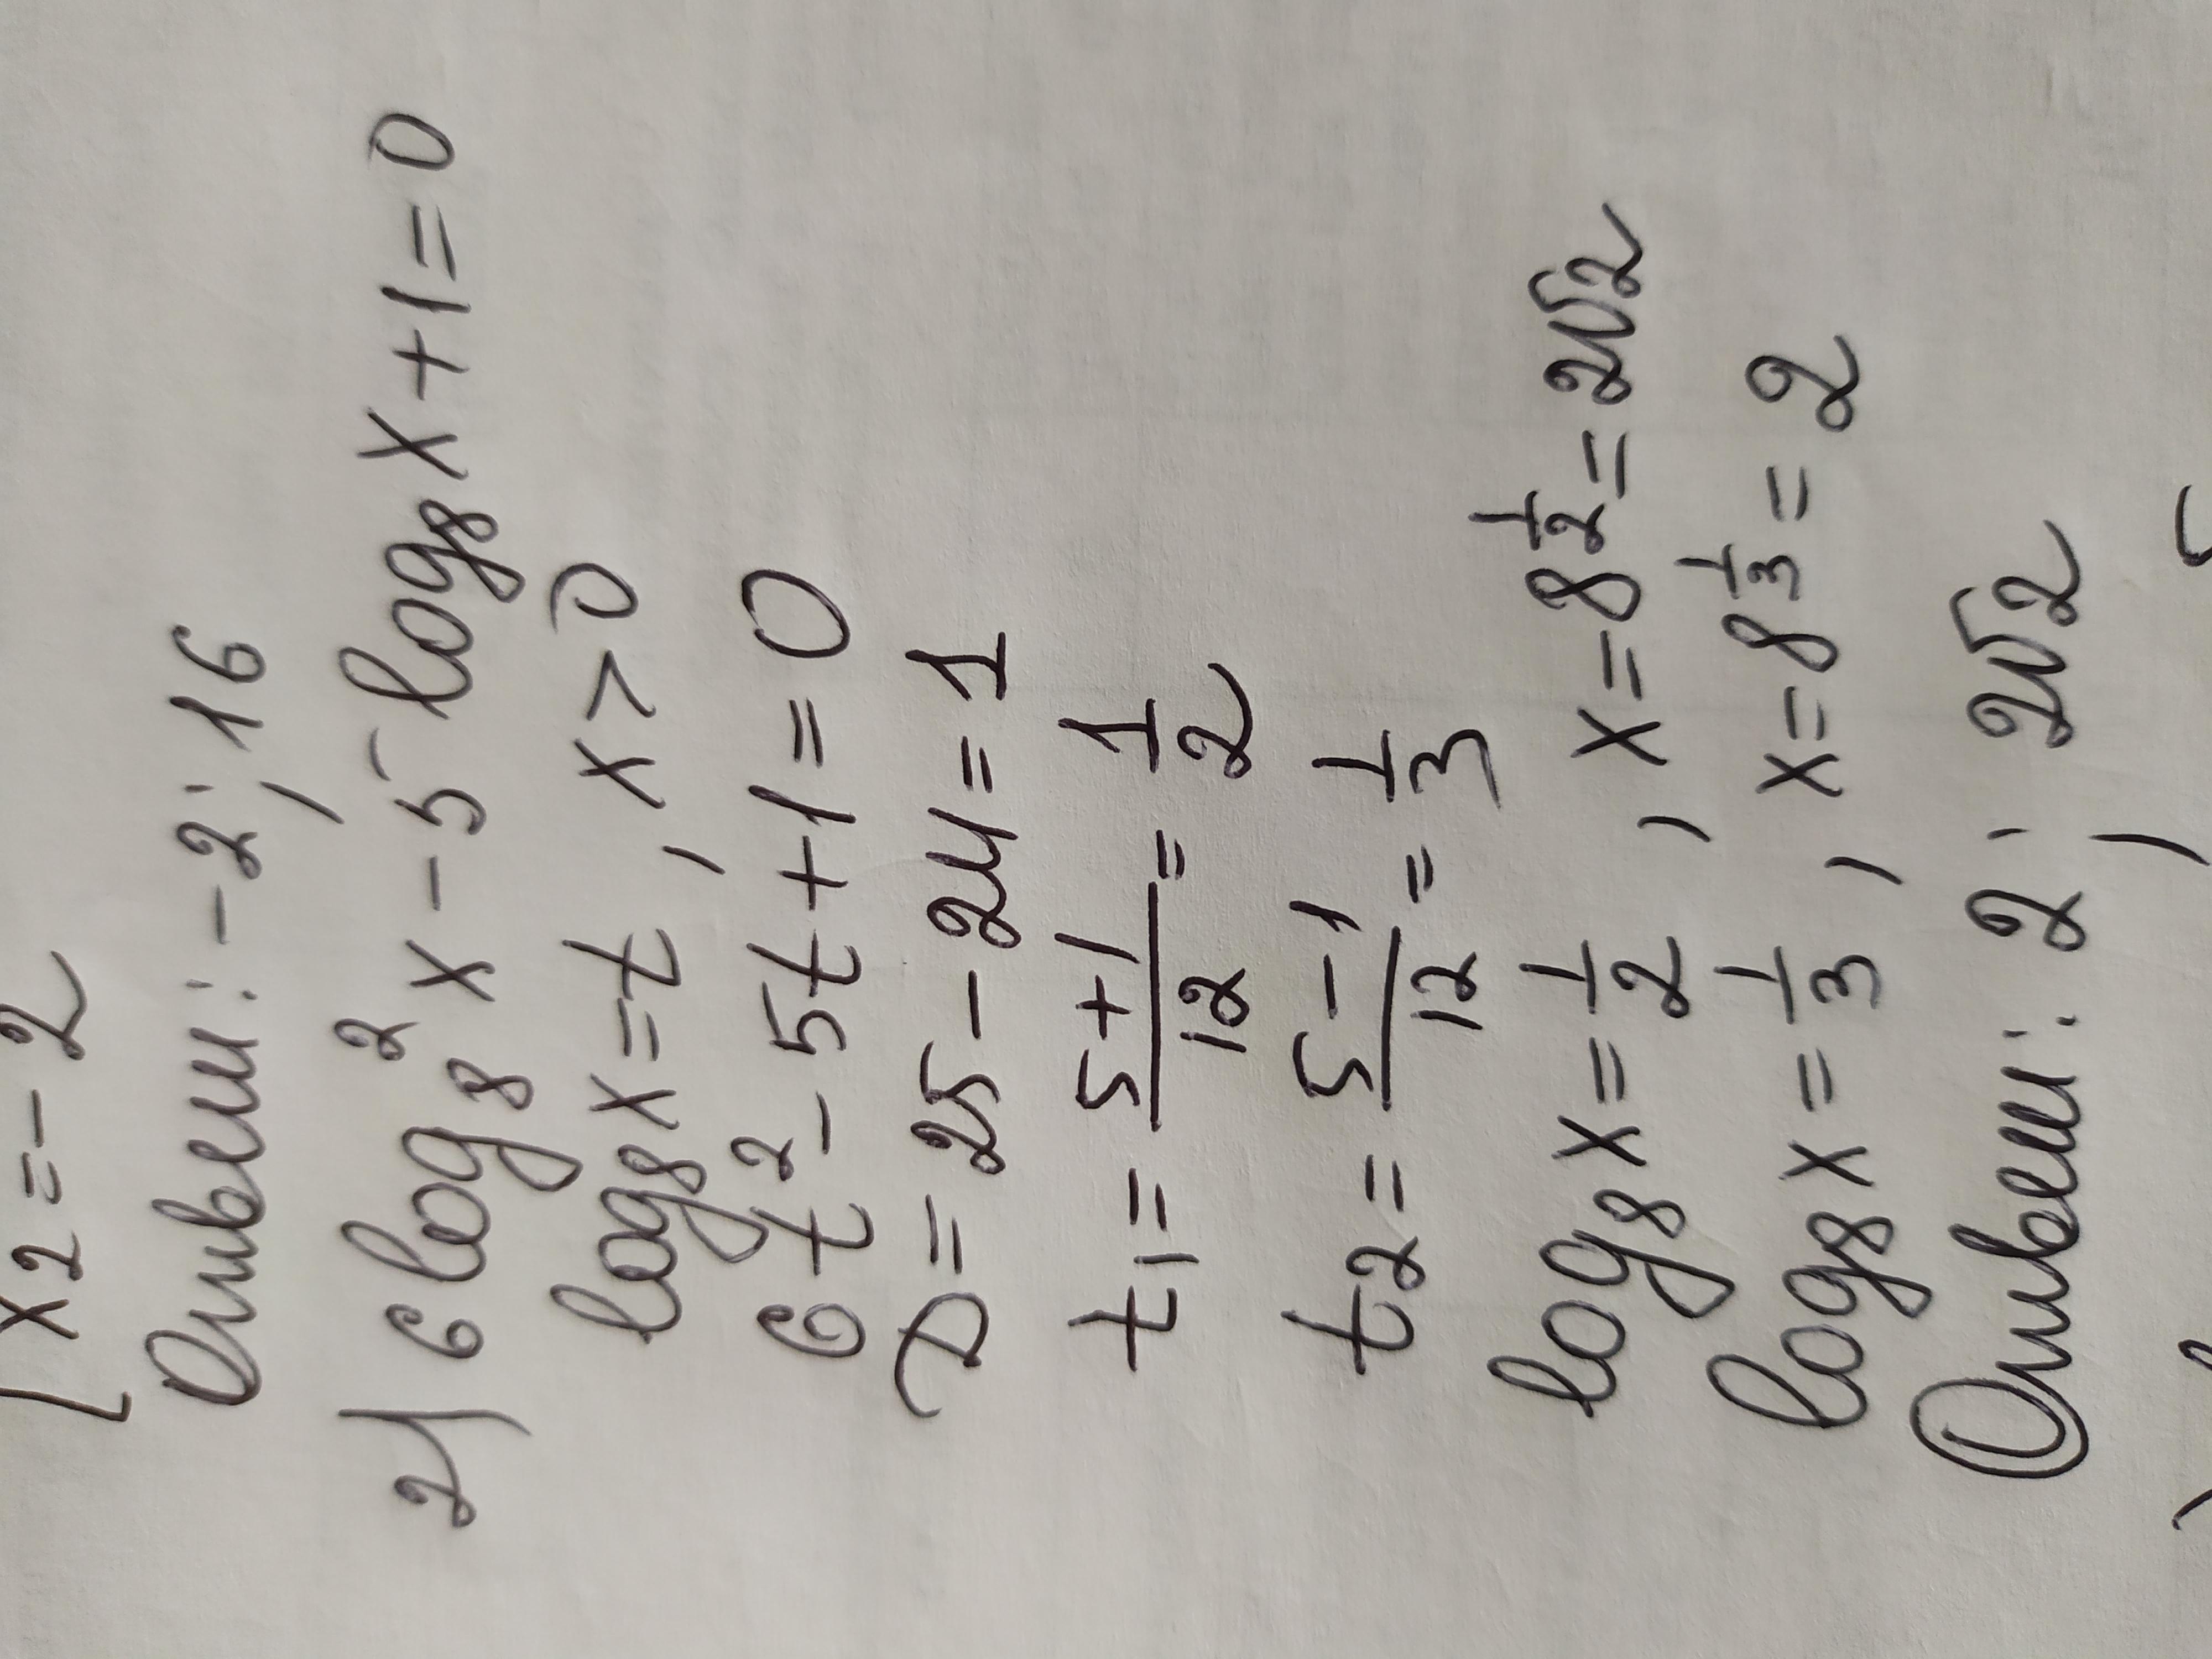 [x₂ = -2
Ответ: -2; 16
2) 6 log₈² x - 5 log₈ x + 1 = 0
log₈ x = t, x > 0
6t² - 5t + 1 = 0
D = 25 - 24 = 1
t₁ = (5+1)/12 = 1/2
t₂ = (5-1)/12 = 1/3
log₈ x = 1/2, x = 8^(1/2) = 2√2
log₈ x = 1/3, x = 8^(1/3) = 2
Ответ: 2; 2√2